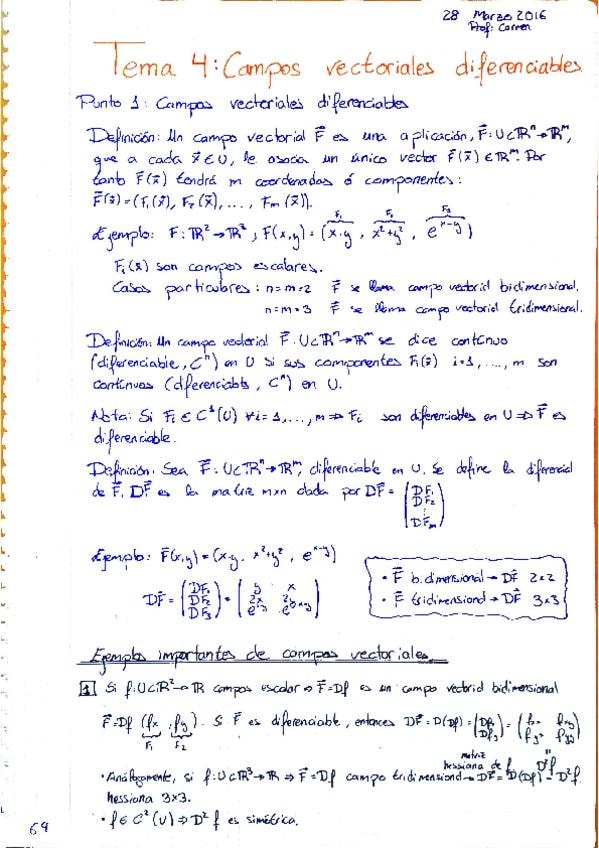 28 Marzo 2016
Prof: Carmen
Tema 4: Campos vectoriales diferenciables
Punto 1: Campos vectoriales diferenciables
Definición: Un campo vectorial F⃗ es una aplicación, F⃗: U⊂ℝⁿ→ℝᵐ,
que a cada x⃗∈U, le asocia un único vector F⃗(x⃗)∈ℝᵐ. Por
tanto F⃗(x⃗) tendrá m coordenadas ó componentes:
F⃗(x⃗)=(F₁(x⃗), F₂(x⃗), ..., Fₘ(x⃗)).
F₁ F₂ F₃
Ejemplo: F: ℝ²→ℝ³, F(x,y)=(x·y, x²+y², e^(x-y))
Fᵢ(x⃗) son campos escalares.
Casos particulares: n=m=2 F⃗ se llama campo vectorial bidimensional.
n=m=3 F⃗ se llama campo vectorial tridimensional.
Definición: Un campo vectorial F⃗: U⊂ℝⁿ→ℝᵐ se dice continuo
(diferenciable, Cⁿ) en U si sus componentes Fᵢ(x⃗) i=1,...,m son
continuas (diferenciabls, Cⁿ) en U.
Nota: Si Fᵢ∈C¹(U) ∀i=1,...,m ⇒ Fᵢ son diferenciables en U ⇒ F⃗ es
diferenciable.
Definición: Sea F⃗: U⊂ℝⁿ→ℝᵐ, diferenciable en U. Se define la diferencial
de F⃗, DF⃗ es la matriz m×n dada por DF⃗ = (DF₁ DF₂ ⋮ DFₘ)
Ejemplo: F⃗(x,y)=(x·y, x²+y², e^(x-y))
DF⃗ = (DF₁ DF₂ DF₃) = (y x 2x 2y
• F⃗ bidimensional → DF⃗ 2×2
• F⃗ tridimensional → DF⃗ 3×3
Ejemplos importantes de campos vectoriales.
1 Si f: U⊂ℝ²→ℝ campos escalar ⇒ F⃗=Df es un campo vectorial bidimensional
F⃗=Df (fx, fy). Si F⃗ es diferenciable, entonces DF⃗=D(Df)=
F₁ F₂
matriz
hessiana de f D²f
• Análogamente, si f: U⊂ℝ³→ℝ ⇒ F⃗=Df campo tridimensional → DF⃗=D(Df)=D²f.
hessiana 3×3.
• f∈C²(U) ⇒ D²f es simétrica.
69